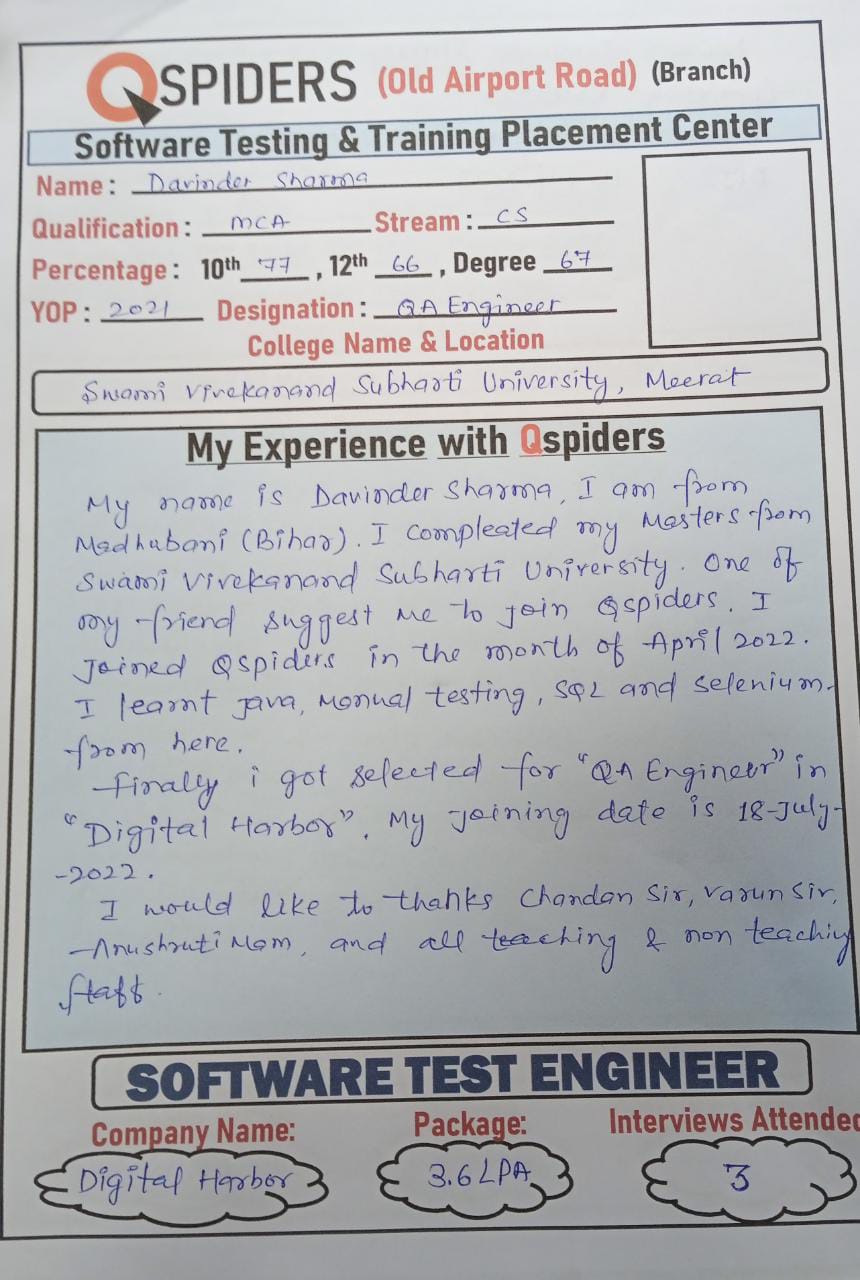 QSPIDERS (Old Airport Road) (Branch)
Software Testing & Training Placement Center
Name: Davinder Sharma
Qualification: MCA Stream: CS
Percentage: 10th 77, 12th 66, Degree 67
YOP: 2021 Designation: QA Engineer
College Name & Location
Swami Vivekanand Subharti University, Meerat
My Experience with Qspiders
My name is Davinder Sharma, I am from
Madhubani (Bihar). I compleated my Masters from
Swami Vivekanand Subharti University. One of
my friend suggest me to join Qspiders. I
joined Qspiders in the month of April 2022.
I learnt java, Manual testing, SQL and selenium.
from here.
Finally i got selected for "QA Engineer" in
"Digital Harbor". My joining date is 18-July-
-2022.
I would like to thanks Chandan Sir, Varun Sir,
Anushruti Mam, and all teaching & non teaching
staff.
SOFTWARE TEST ENGINEER
Company Name: Package: Interviews Attended
Digital Harbor 3.6 LPA 3